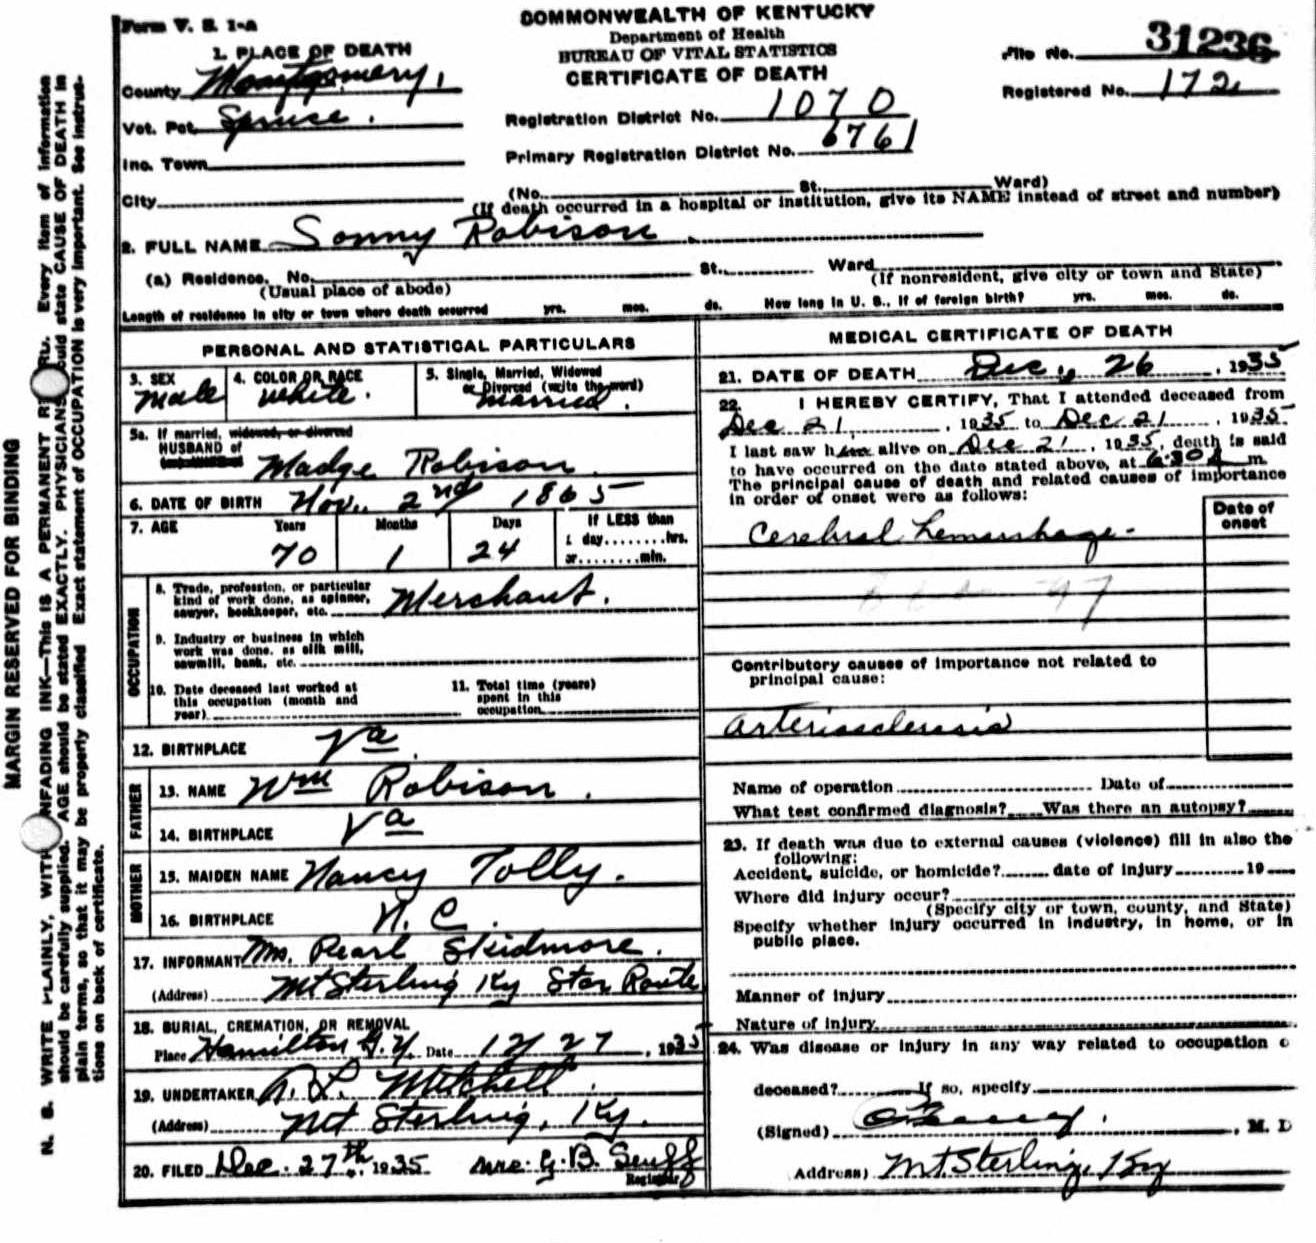 Form V. S. 1-A
COMMONWEALTH OF KENTUCKY
Department of Health
BUREAU OF VITAL STATISTICS
CERTIFICATE OF DEATH
File No. 31236
Registered No. 172
1. PLACE OF DEATH
County Montgomery,
Vot. Pct. Spruce.
Inc. Town
City
Registration District No. 1070
Primary Registration District No. 6761
(No. St. Ward)
(If death occurred in a hospital or institution, give its NAME instead of street and number)
2. FULL NAME Sonny Robison
(a) Residence. No. St. Ward
(Usual place of abode) (If nonresident, give city or town and State)
Length of residence in city or town where death occurred yrs. mos. ds. How long in U. S., if of foreign birth? yrs. mos. ds.
PERSONAL AND STATISTICAL PARTICULARS
3. SEX Male
4. COLOR OR RACE White.
5. Single, Married, Widowed
or Divorced (write the word)
Married.
5a. If married, widowed, or divorced
HUSBAND of
Madge Robison
6. DATE OF BIRTH Nov. 2nd 1865
7. AGE Years Months Days If LESS than
70 1 24 1 day........hrs.
or........min.
OCCUPATION
8. Trade, profession, or particular
kind of work done, as spinner,
sawyer, bookkeeper, etc. Merchant.
9. Industry or business in which
work was done, as silk mill,
sawmill, bank, etc.
10. Date deceased last worked at
this occupation (month and
year)
11. Total time (years)
spent in this
occupation
12. BIRTHPLACE Va.
FATHER
13. NAME Wm Robison.
14. BIRTHPLACE Va
MOTHER
15. MAIDEN NAME Nancy Tolly.
16. BIRTHPLACE N. C.
17. INFORMANT Mrs. Pearl Skidmore.
(Address) Mt Sterling Ky Star Route
18. BURIAL, CREMATION, OR REMOVAL
Place Hamilton G.Y. Date 12/27, 1935
19. UNDERTAKER R. L. Mitchell.
(Address) Mt Sterling, Ky.
20. FILED Dec. 27th, 1935 Mrs. G. B. Senff
Registrar
MEDICAL CERTIFICATE OF DEATH
21. DATE OF DEATH Dec, 26, 1935
22. I HEREBY CERTIFY, That I attended deceased from
Dec 21, 1935 to Dec 21, 1935
I last saw him alive on Dec 21, 1935, death is said
to have occurred on the date stated above, at 6:30 m.
The principal cause of death and related causes of importance
in order of onset were as follows:
Date of
onset
Cerebral hemorrhage-
97
Contributory causes of importance not related to
principal cause:
Arteriosclerosis
Name of operation Date of
What test confirmed diagnosis? Was there an autopsy?
23. If death was due to external causes (violence) fill in also the
following:
Accident, suicide, or homicide? date of injury 19
Where did injury occur?
(Specify city or town, county, and State)
Specify whether injury occurred in industry, in home, or in
public place.
Manner of injury
Nature of injury
24. Was disease or injury in any way related to occupation o
deceased? If so, specify
(Signed) , M. D
Address) Mt Sterling, Ky
MARGIN RESERVED FOR BINDING
N. B. WRITE PLAINLY, WITH UNFADING INK—THIS IS A PERMANENT R RU. Every item of information
should be carefully supplied. AGE should be stated EXACTLY. PHYSICIANS should state CAUSE OF DEATH in
plain terms, so that it may be properly classified. Exact statement of OCCUPATION is very important. See instruc-
tions on back of certificate.